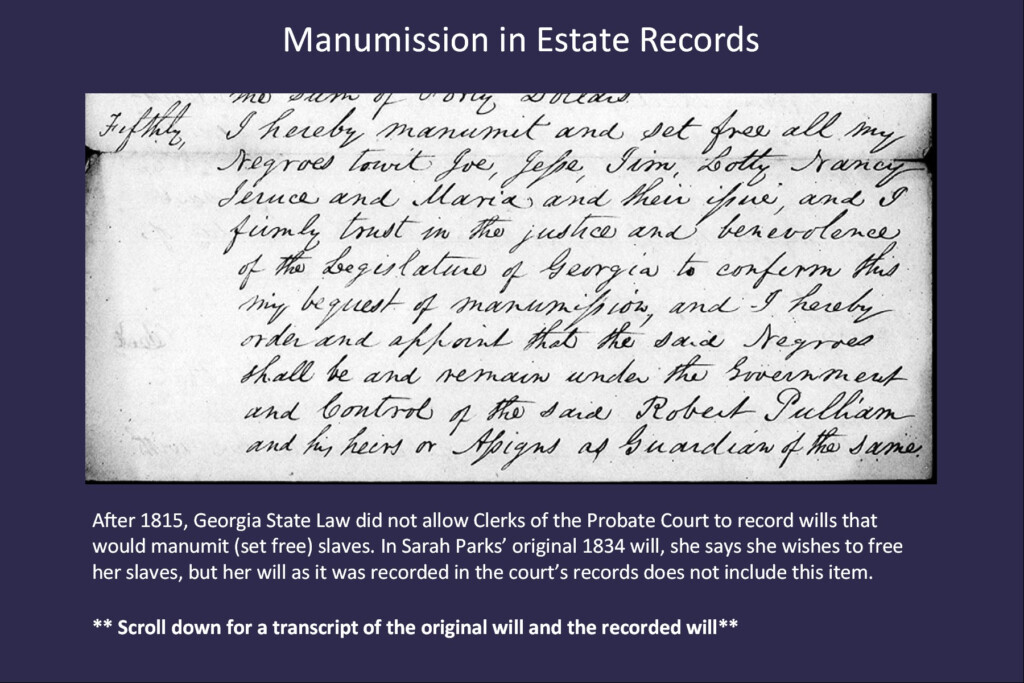 Manumission in Estate Records
the sum of Forty Dollars.
Fifthly, I hereby manumit and set free all my
Negroes towit Joe, Jesse, Tim, Lotty Nancy
Jeruce and Maria and their issue, and I
firmly trust in the justice and benevolence
of the Legislature of Georgia to confirm this
my bequest of manumission, and I hereby
order and appoint that the said Negroes
shall be and remain under the Government
and Control of the said Robert Pulliam
and his heirs or Assigns as Guardian of the same.
After 1815, Georgia State Law did not allow Clerks of the Probate Court to record wills that
would manumit (set free) slaves. In Sarah Parks’ original 1834 will, she says she wishes to free
her slaves, but her will as it was recorded in the court’s records does not include this item.
** Scroll down for a transcript of the original will and the recorded will**